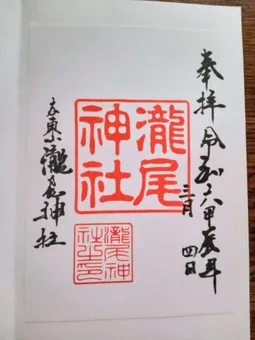 奉拝 令和六甲辰年
三月
四日
瀧尾
神社
瀧尾神
社之印
東瀧尾神社